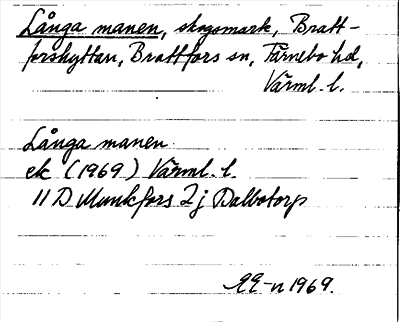 Långa manen, skogsmark, Bratt-
forshyttan, Brattfors sn, Färnebo hd,
Värml. l.
Långa manen
ek (1969) Värml. l.
11 D Munkfors 2 j Dalbotorp
1969.